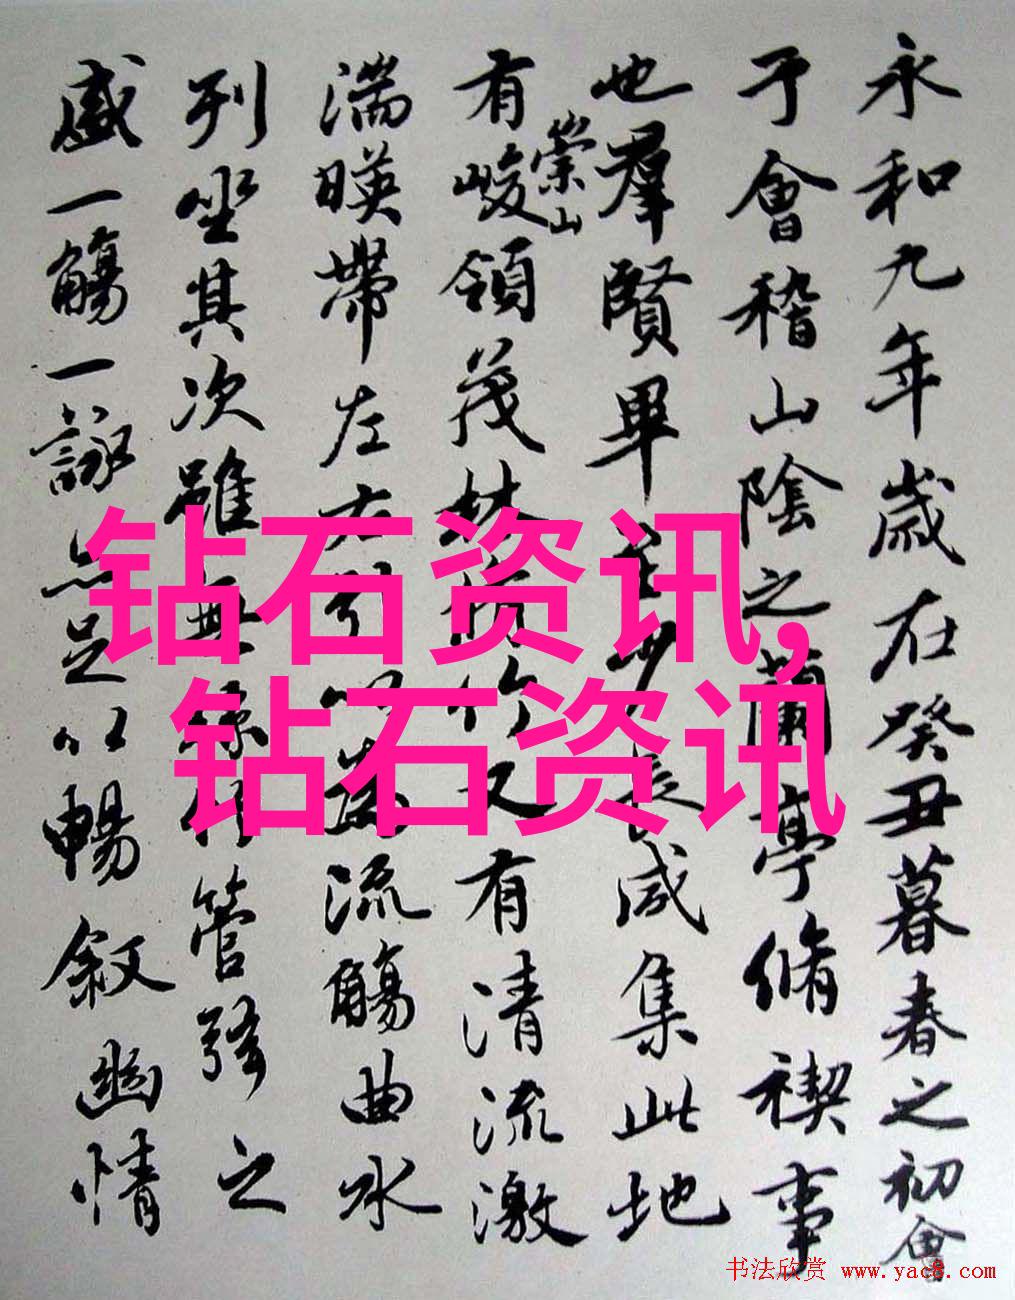 永和九年歲在癸丑暮春之初會
于會稽山陰之蘭亭脩禊事
也羣賢畢至少長咸集此地
有崇山峻領茂林脩竹又有清流激
湍暎帶左右引以為流觴曲水
列坐其次雖無絲竹管弦之
盛一觴一詠亦足以暢敘幽情
钻石资讯,
钻石资讯
书法欣赏 www.yac8.com